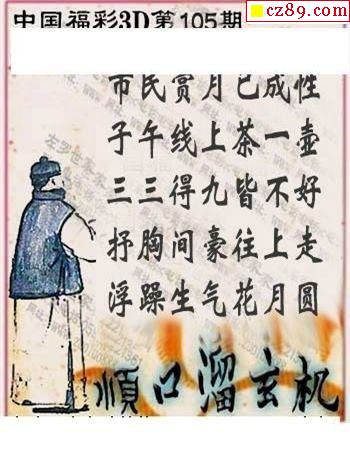 cz89.com
中国福彩3D第105期
市民赏月已成性
子午线上茶一壶
三三得九皆不好
抒胸间豪往上走
浮躁生气花月圆
順口溜玄机